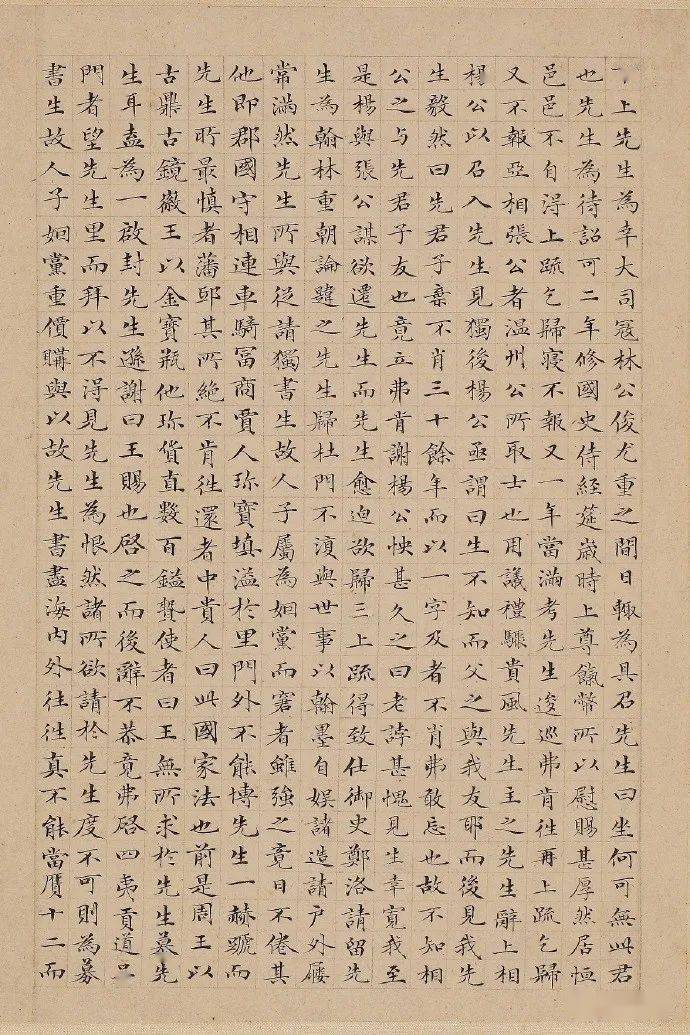 上先生為幸大司寇林公俊尤重之間日輒為具召先生曰坐何可無此君
也先生為待詔可二年修國史侍經筵歲時上尊餼幣所以慰賜甚厚然居恒
邑邑不自得上疏乞歸寢不報又一年當滿考先生逡巡弗肯往再上疏乞歸
又不報亞相張公者溫州公所取士也用議禮驟貴風先生主之先生辭上相
楊公以召入先生見獨後楊公亟謂曰生不知而父之與我友耶而後見我先
生毅然曰先君子棄不肖三十餘年而以一字及者不肖弗敢忘也故不知相
公之与先君子友也竟立弗肯謝楊公怏甚久之曰老誖甚愧見生幸寬我至
是楊與張公謀欲遷先生而先生愈迫欲歸三上疏得致仕御史鄭洛請留先
生為翰林重朝論韙之先生歸杜門不復與世事以翰墨自娛諸造請戶外屨
常滿然先生所與從請獨書生故人子屬為姻黨而窘者雖強之竟日不倦其
他即郡國守相連車騎冨商賈人珎寶填溢於里門外不能博先生一赫蹏而
先生所最慎者藩邸其所絶不肯往還者中貴人曰此國家法也前是周王以
古鼎古鏡徽王以金寶瓶他珎貨直數百鎰贄使者曰王無所求於先生慕先
生耳盍為一啟封先生遜謝曰王賜也啓之而後辭不恭竟弗啓四夷貢道
門者望先生里而拜以不得見先生為恨然諸所欲請於先生度不可則為募
書生故人子姻黨重價購與以故先生書畫海內外往往真不能當贗十二而